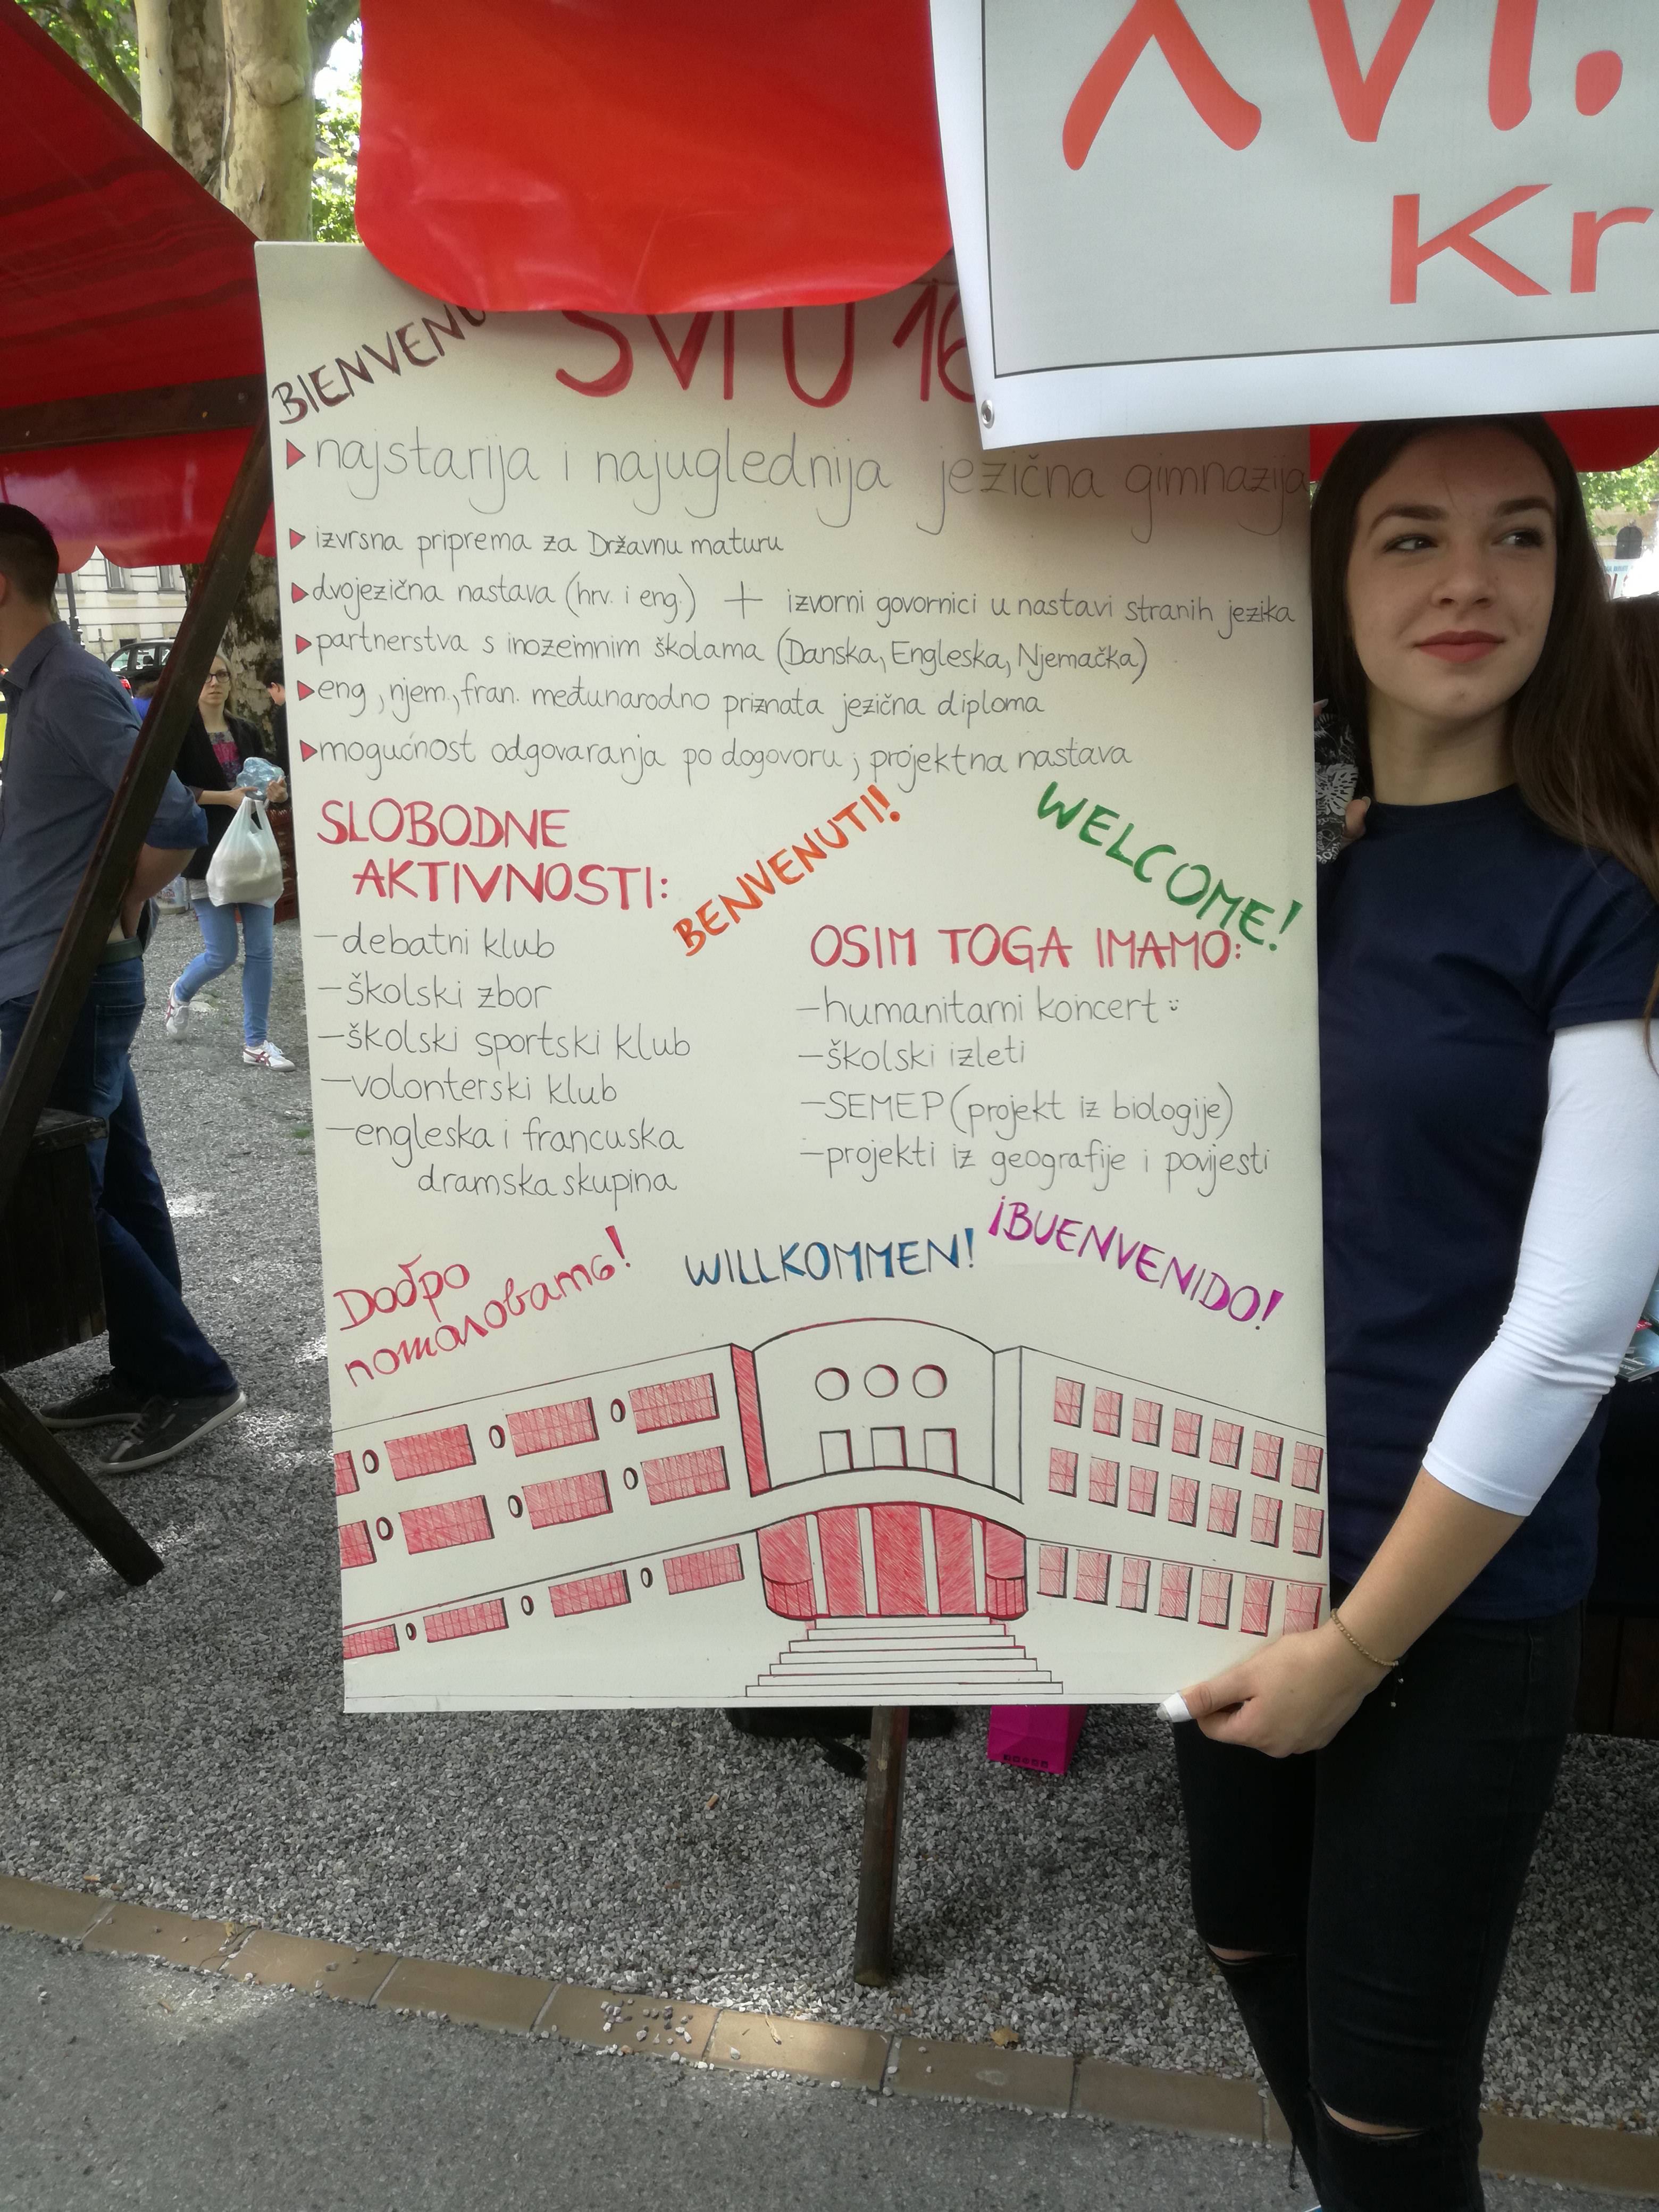 XVI.
Kr
BIENVENU
SVI U 16
najstarija i najuglednija jezična gimnazija
izvrsna priprema za Državnu maturu
dvojezična nastava (hrv. i eng.) + izvorni govornici u nastavi stranih jezika
partnerstva s inozemnim školama (Danska, Engleska, Njemačka)
eng, njem., fran. međunarodno priznata jezična diploma
mogućnost odgovaranja po dogovoru; projektna nastava
SLOBODNE
AKTIVNOSTI:
-debatni klub
-školski zbor
-školski sportski klub
-volonterski klub
-engleska i francuska
dramska skupina
BENVENUTI!
WELCOME!
OSIM TOGA IMAMO:
-humanitarni koncert
-školski izleti
-SEMEP (projekt iz biologije)
-projekti iz geografije i povijesti
Добро
пожаловать!
WILLKOMMEN!
¡BUENVENIDO!